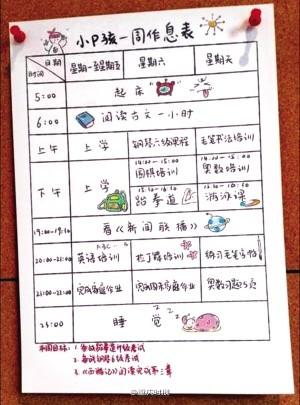 小P孩一周作息表
日期 星期一至星期五 星期六 星期天
时间
5:00 起床
6:00 阅读古文一小时
上午 上学 钢琴六级课程 毛笔书法培训
14:00-15:00 14:00-15:00
围棋培训 奥数培训
下午 上学
跆拳道 游泳课
19:00-19:30 看《新闻联播》
20:00-21:00 英语培训 拉丁舞培训 练习毛笔字帖
21:00-22:00 完成家庭作业 完成周末家庭作业 奥数习题5页
23:00 睡觉
本周目标:1.参加跆拳道升级考试
2.备战钢琴6级考试
3.《西游记》阅读完成第三章